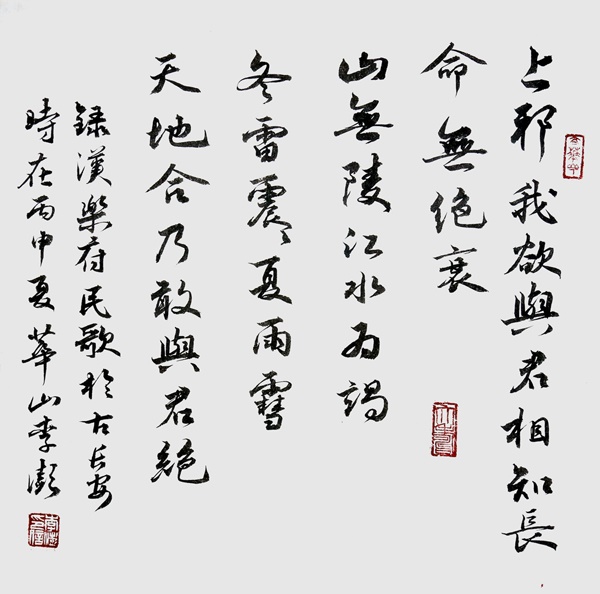 上邪我欲與君相知長
命無絕衰
山無陵江水為竭
冬雷震震夏雨雪
天地合乃敢與君絕
錄漢樂府民歌於古長安
時在丙申夏華山李彭